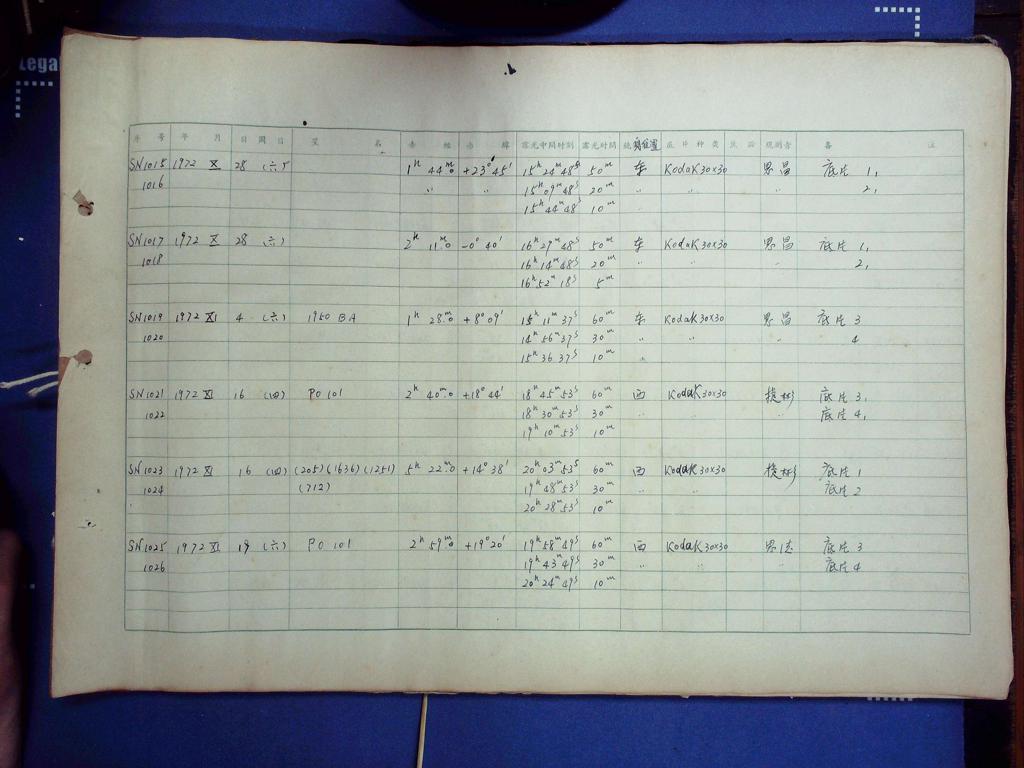 Lega
序 号 年 月 日 周日 星 名 赤 经 赤 纬 露光中间时刻 露光时间 底片种类 观测者 备 注
SN1015 1972 X 28 (六) 1ʰ 44ᵐ.0 +23° 45′ 15ʰ 24ᵐ 48ˢ 50ᵐ 东 Kodak 30×30 界昌 底片 1,
1016 〃 〃 15ʰ 09ᵐ 48ˢ 20ᵐ 〃 〃 〃 2,
15ʰ 44ᵐ 48ˢ 10ᵐ
SN1017 1972 X 28 (六) 2ʰ 11ᵐ.0 -0° 40′ 16ʰ 29ᵐ 48ˢ 50ᵐ 东 Kodak 30×30 界昌 底片 1,
1018 16ʰ 14ᵐ 48ˢ 20ᵐ 〃 〃 〃 2,
16ʰ 52ᵐ 18ˢ 5ᵐ
SN1019 1972 XI 4 (六) 1950 BA 1ʰ 28ᵐ.0 +8° 09′ 15ʰ 11ᵐ 37ˢ 60ᵐ 东 Kodak 30×30 界昌 底片 3
1020 14ʰ 56ᵐ 37ˢ 30ᵐ 〃 〃 4
15ʰ 36 37ˢ 10ᵐ
SN1021 1972 XI 16 (四) PO 101 2ʰ 40ᵐ.0 +18° 44′ 18ʰ 45ᵐ 53ˢ 60ᵐ 西 Kodak 30×30 底片 3,
1022 18ʰ 30ᵐ 53ˢ 30ᵐ 〃 〃 底片 4,
19ʰ 10ᵐ 53ˢ 10ᵐ
SN1023 1972 XI 16 (四) (205) (1636) (1251) 5ʰ 22ᵐ.0 +14° 38′ 20ʰ 03ᵐ 53ˢ 60ᵐ 西 Kodak 30×30 底片 1
1024 (712) 19ʰ 48ᵐ 53ˢ 30ᵐ 〃 〃 底片 2
20ʰ 28ᵐ 53ˢ 10ᵐ
SN1025 1972 XI 19 (六) PO 101 2ʰ 59ᵐ.0 +19° 20′ 19ʰ 58ᵐ 49ˢ 60ᵐ 西 Kodak 30×30 底片 3
1026 19ʰ 43ᵐ 49ˢ 30ᵐ 〃 〃 〃 底片 4
20ʰ 24ᵐ 49ˢ 10ᵐ